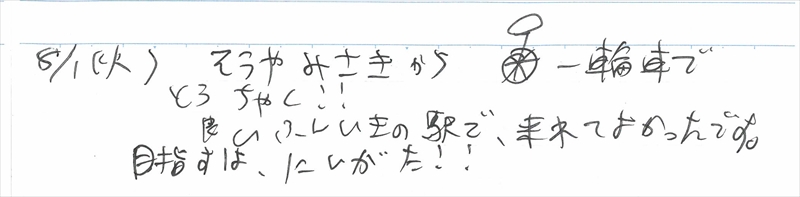 8/1(火) そうやみさきから 一輪車で
とうちゃく!!
良いふんいきの駅で、来れてよかったです。
目指すは、にいがた!!